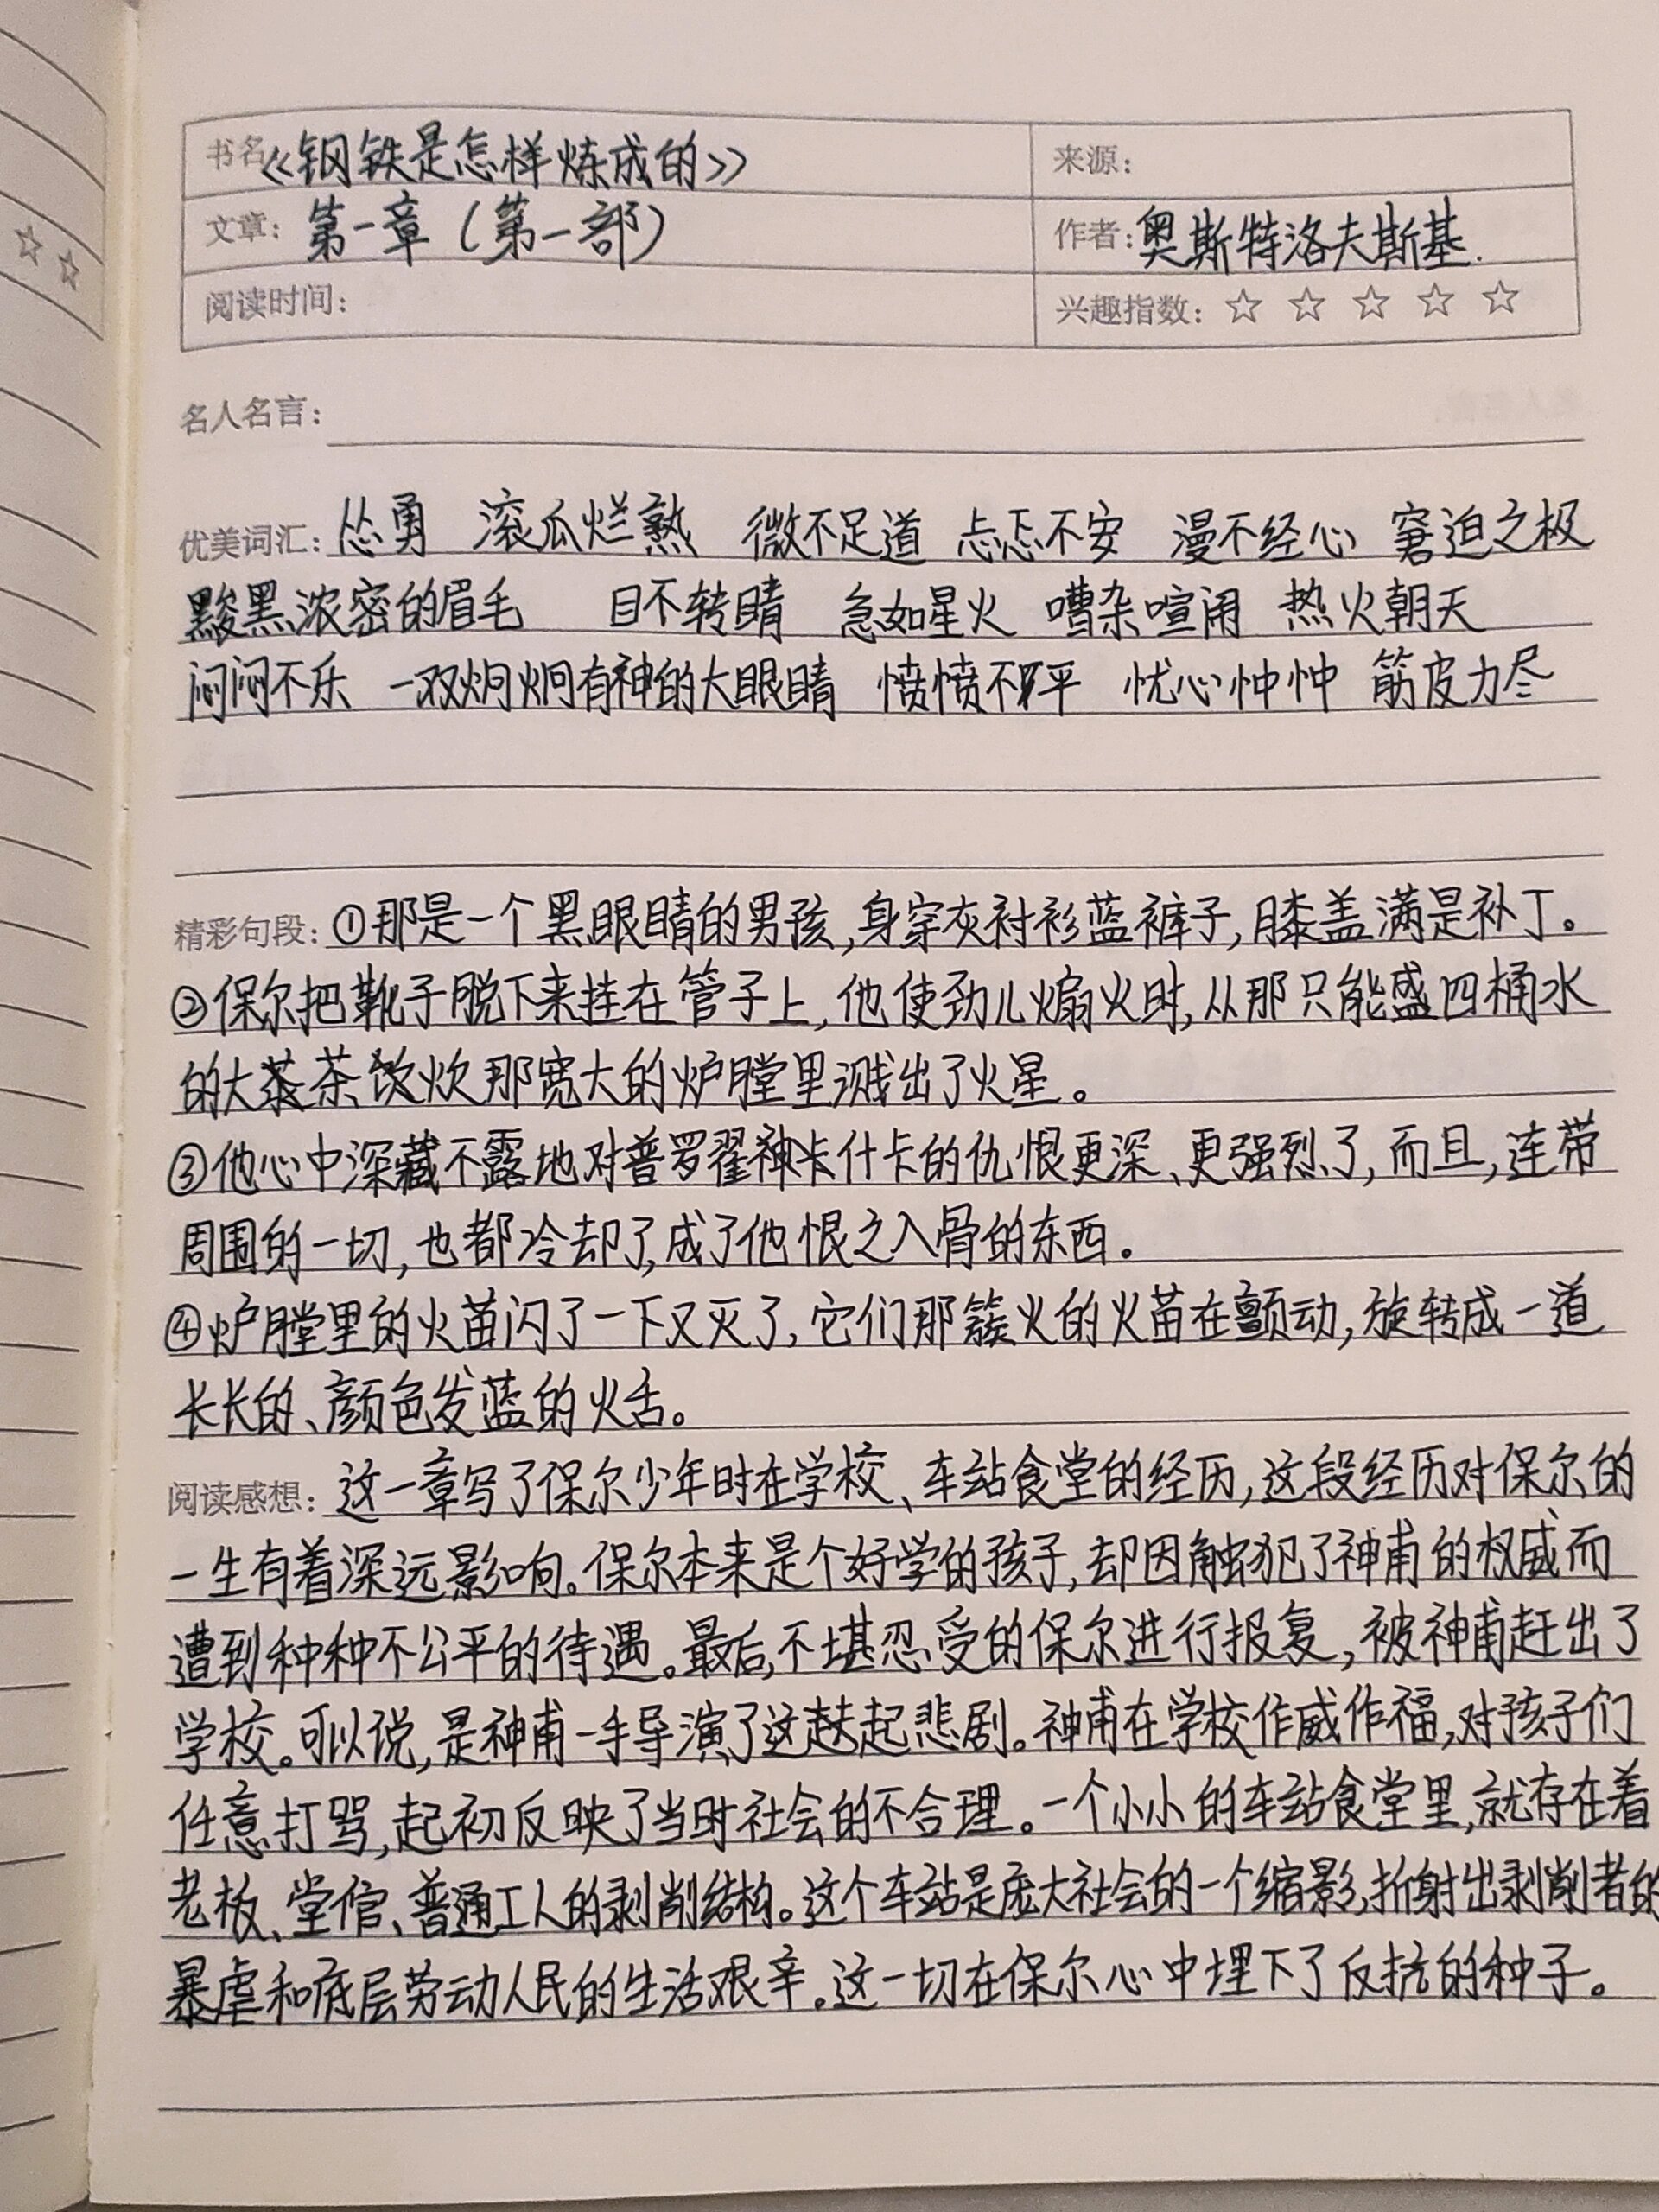 书名《钢铁是怎样炼成的》 来源:
文章: 第一章（第一部） 作者:奥斯特洛夫斯基.
阅读时间: 兴趣指数: ☆ ☆ ☆ ☆ ☆
名人名言:
优美词汇: 怂勇 滚瓜烂熟 微不足道 忐忑不安 漫不经心 窘迫之极
黢黑浓密的眉毛 目不转睛 急如星火 嘈杂喧闹 热火朝天
闷闷不乐 一双炯炯有神的大眼睛 愤愤不平 忧心忡忡 筋皮力尽
精彩句段: ①那是一个黑眼睛的男孩,身穿灰衬衫蓝裤子,膝盖满是补丁。
②保尔把靴子脱下来挂在管子上,他使劲儿煽火时,从那只能盛四桶水
的大茶炊那宽大的炉膛里溅出了火星。
③他心中深藏不露地对普罗霍什卡的仇恨更深、更强烈了,而且,连带
周围的一切,也都冷却了,成了他恨之入骨的东西。
④炉膛里的火苗闪了一下又灭了,它们那簇火的火苗在颤动,旋转成一道
长长的、颜色发蓝的火舌。
阅读感想: 这一章写了保尔少年时在学校、车站食堂的经历,这段经历对保尔的
一生有着深远影响。保尔本来是个好学的孩子,却因触犯了神甫的权威而
遭到种种不公平的待遇。最后,不堪忍受的保尔进行报复,被神甫赶出了
学校。可以说,是神甫一手导演了这起悲剧。神甫在学校作威作福,对孩子们
任意打骂,起初反映了当时社会的不合理。一个小小的车站食堂里,就存在着
老板、堂倌、普通工人的剥削结构。这个车站是庞大社会的一个缩影,折射出剥削者的
暴虐和底层劳动人民的生活艰辛。这一切在保尔心中埋下了反抗的种子。